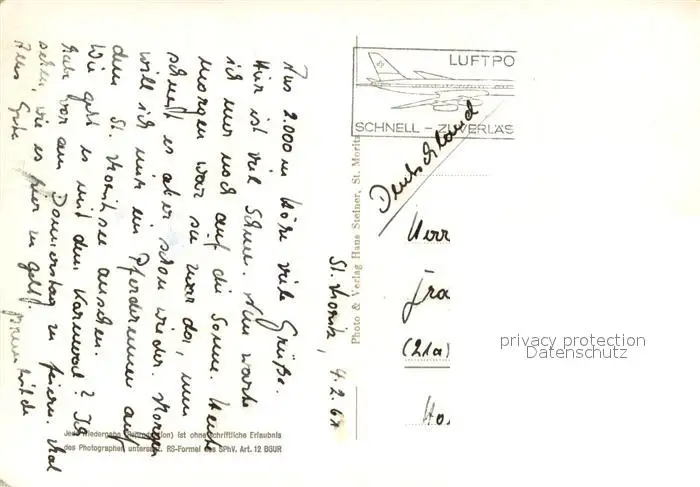 St. Moritz, 4.2.67
Aus 2.000 m Höhe viele Grüße.
Hier ist viel Schnee. Nun warte
ich nur noch auf die Sonne. Heute
morgen war sie zwar da, nun
schneit es aber schon wieder. Morgen
will ich mir ein Pferderennen auf
dem St. Moritzsee ansehen.
Wie geht es mit dem Karneval? Ich
habe vor am Donnerstag zu feiern. Mal
sehen, wie es hier zu geht.
Alles Gute
Jede Wiedergabe (Reproduktion) ist ohne schriftliche Erlaubnis
des Photographen untersagt. RS-Formel des SPhV. Art. 12 BGUR
Photo & Verlag Hans Steiner, St. Moritz
LUFTPO
SCHNELL – ZUVERLÄS
Deutschland
Herr
Fra
(21a)
Ho
privacy protection
Datenschutz